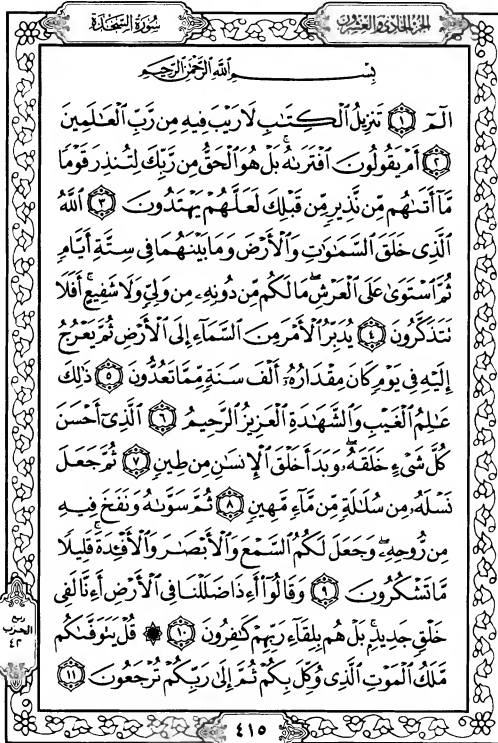 سُورَةُ السَّجْدَةِ
الجُزْءُ الحَادِي وَالعِشْرُونَ
بِسْمِ اللَّهِ الرَّحْمَٰنِ الرَّحِيمِ
الٓمٓ ۝١ تَنزِيلُ ٱلْكِتَٰبِ لَا رَيْبَ فِيهِ مِن رَّبِّ ٱلْعَٰلَمِينَ
۝٢ أَمْ يَقُولُونَ ٱفْتَرَىٰهُ ۚ بَلْ هُوَ ٱلْحَقُّ مِن رَّبِّكَ لِتُنذِرَ قَوْمًا
مَّآ أَتَىٰهُم مِّن نَّذِيرٍ مِّن قَبْلِكَ لَعَلَّهُمْ يَهْتَدُونَ ۝٣ ٱللَّهُ
ٱلَّذِى خَلَقَ ٱلسَّمَٰوَٰتِ وَٱلْأَرْضَ وَمَا بَيْنَهُمَا فِى سِتَّةِ أَيَّامٍ
ثُمَّ ٱسْتَوَىٰ عَلَى ٱلْعَرْشِ ۖ مَا لَكُم مِّن دُونِهِۦ مِن وَلِىٍّ وَلَا شَفِيعٍ ۚ أَفَلَا
تَتَذَكَّرُونَ ۝٤ يُدَبِّرُ ٱلْأَمْرَ مِنَ ٱلسَّمَآءِ إِلَى ٱلْأَرْضِ ثُمَّ يَعْرُجُ
إِلَيْهِ فِى يَوْمٍ كَانَ مِقْدَارُهُۥٓ أَلْفَ سَنَةٍ مِّمَّا تَعُدُّونَ ۝٥ ذَٰلِكَ
عَٰلِمُ ٱلْغَيْبِ وَٱلشَّهَٰدَةِ ٱلْعَزِيزُ ٱلرَّحِيمُ ۝٦ ٱلَّذِىٓ أَحْسَنَ
كُلَّ شَىْءٍ خَلَقَهُۥ ۖ وَبَدَأَ خَلْقَ ٱلْإِنسَٰنِ مِن طِينٍ ۝٧ ثُمَّ جَعَلَ
نَسْلَهُۥ مِن سُلَٰلَةٍ مِّن مَّآءٍ مَّهِينٍ ۝٨ ثُمَّ سَوَّىٰهُ وَنَفَخَ فِيهِ
مِن رُّوحِهِۦ ۖ وَجَعَلَ لَكُمُ ٱلسَّمْعَ وَٱلْأَبْصَٰرَ وَٱلْأَفْـِٔدَةَ ۚ قَلِيلًا
مَّا تَشْكُرُونَ ۝٩ وَقَالُوٓا۟ أَءِذَا ضَلَلْنَا فِى ٱلْأَرْضِ أَءِنَّا لَفِى
خَلْقٍ جَدِيدٍۭ ۚ بَلْ هُم بِلِقَآءِ رَبِّهِمْ كَٰفِرُونَ ۝١٠ ۞ قُلْ يَتَوَفَّىٰكُم
مَّلَكُ ٱلْمَوْتِ ٱلَّذِى وُكِّلَ بِكُمْ ثُمَّ إِلَىٰ رَبِّكُمْ تُرْجَعُونَ ۝١١
ربع
الحزب
٤٢
٤١٥